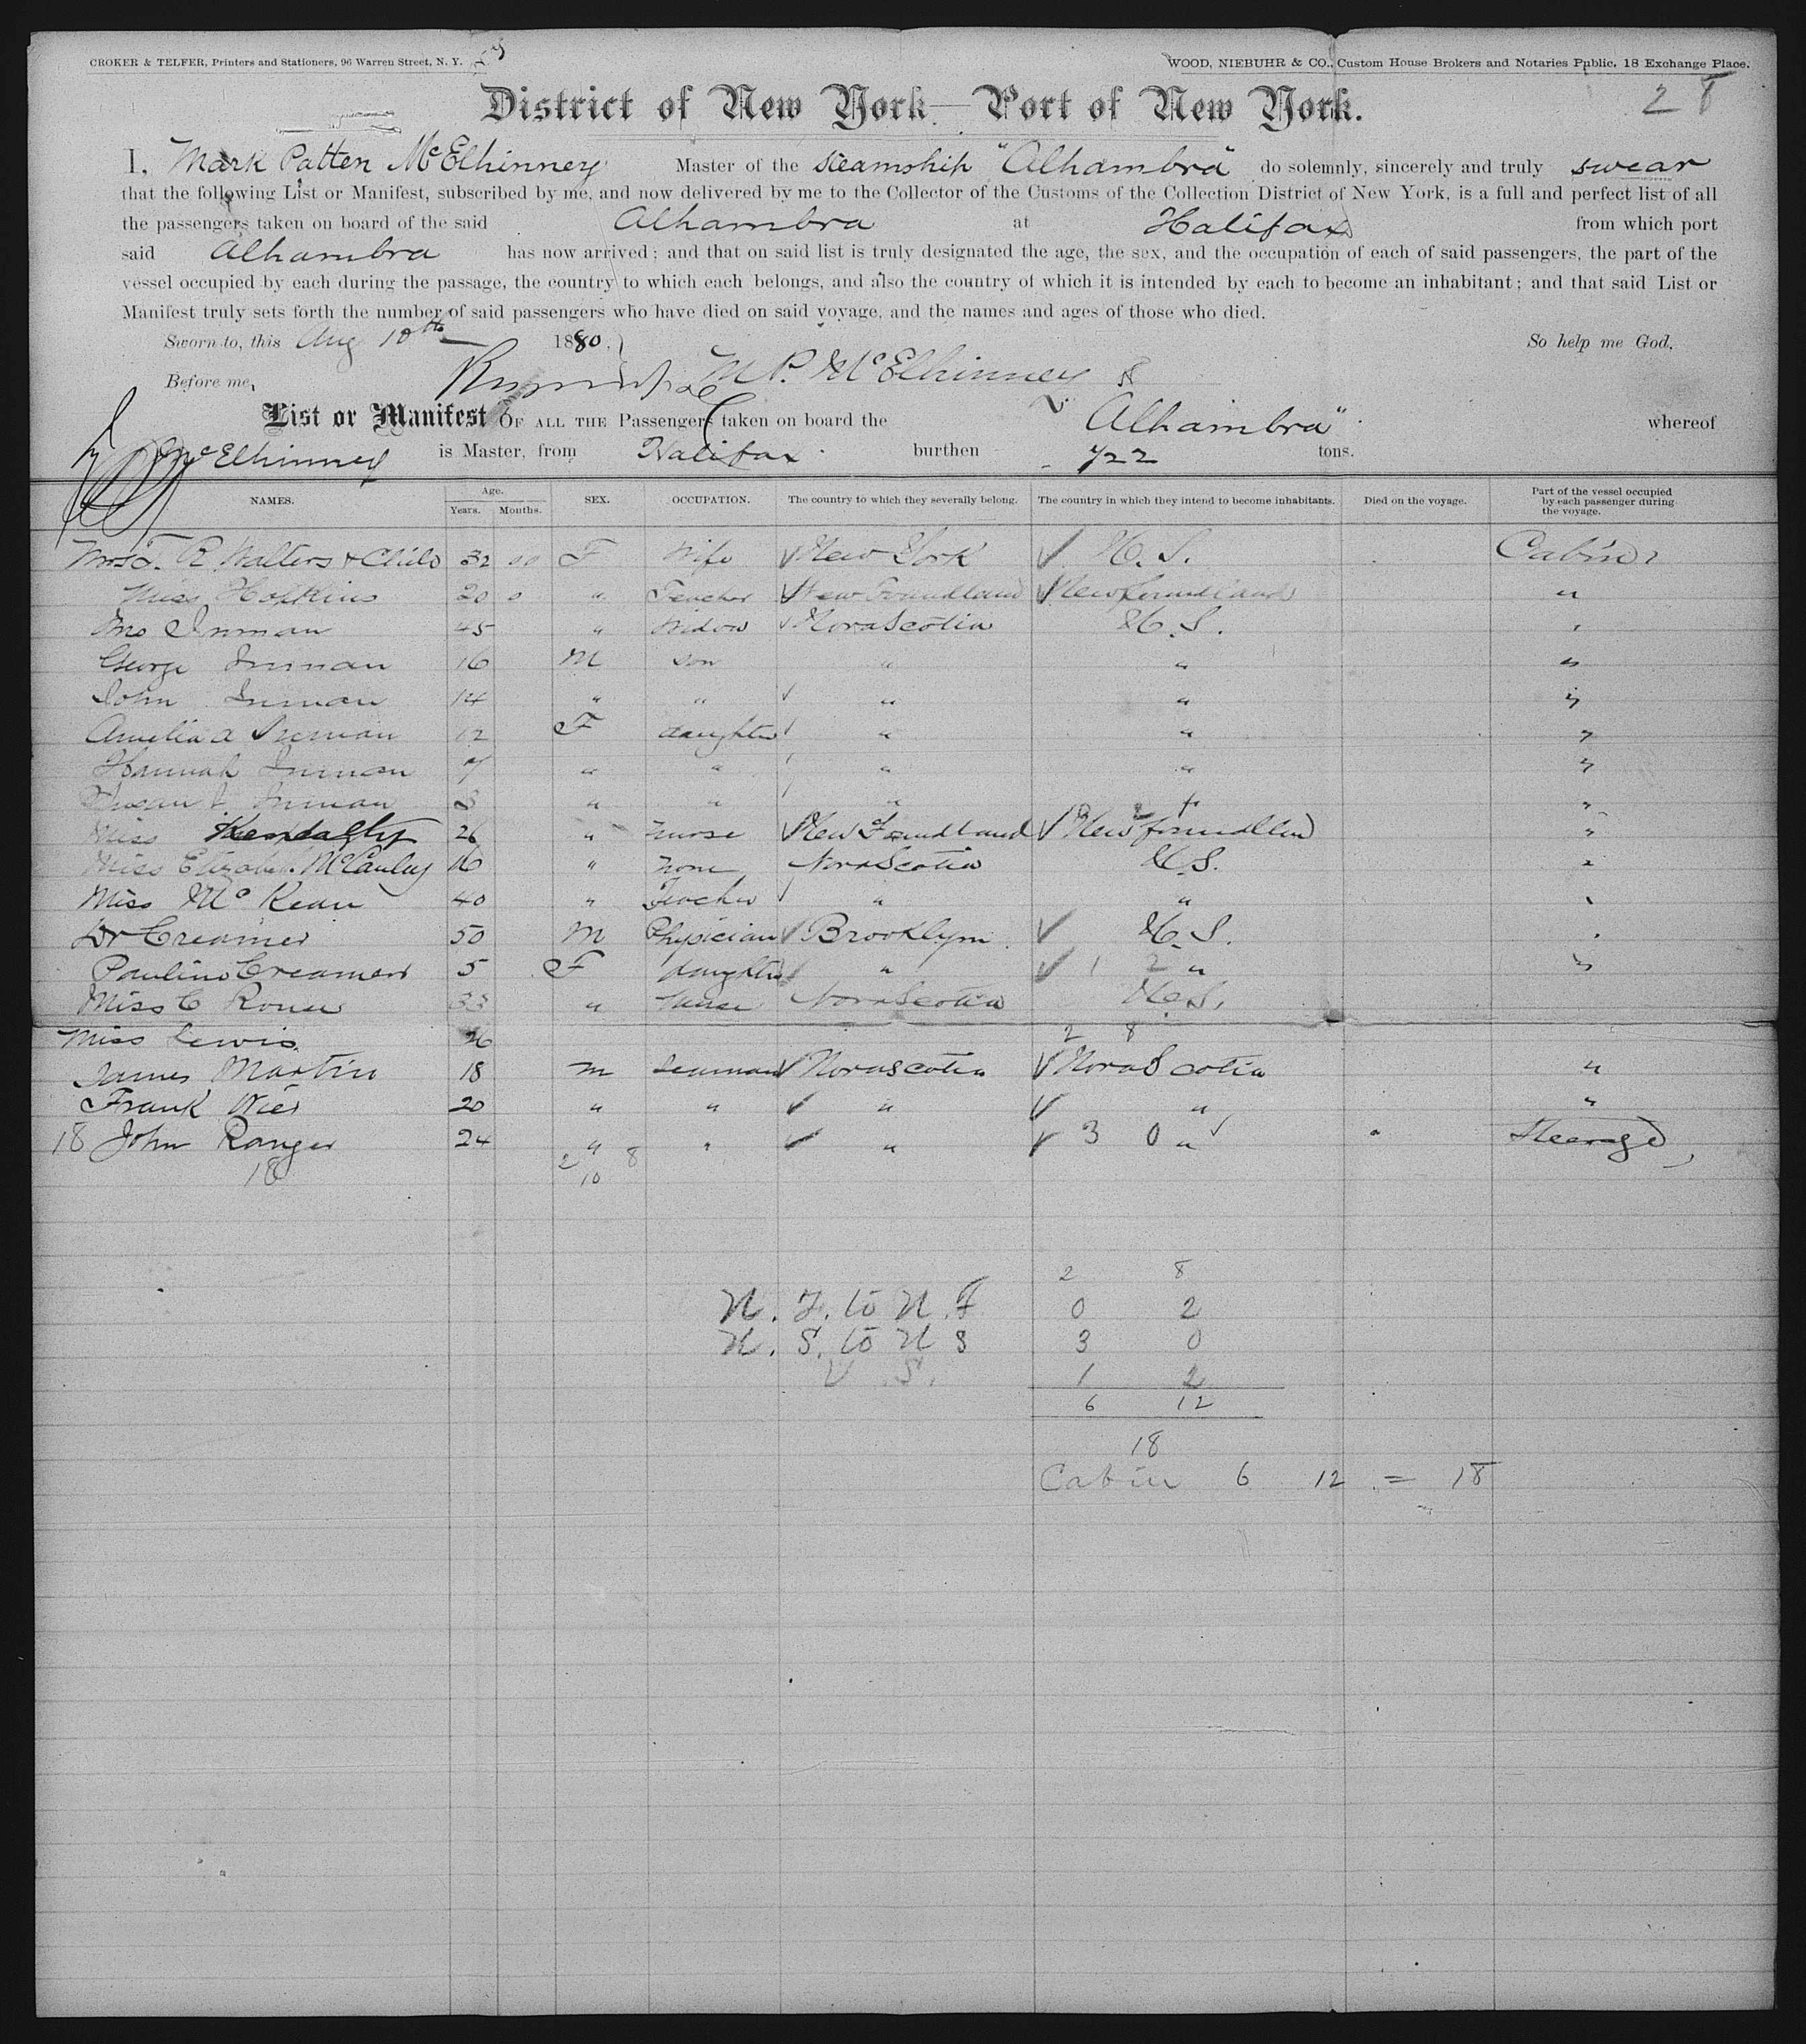 CROKER & TELFER, Printers and Stationers, 96 Warren Street, N. Y.
WOOD, NIEBUHR & CO., Custom House Brokers and Notaries Public, 18 Exchange Place.
District of New York — Port of New York.
I, Mark Patten McElhinney Master of the steamship "Alhambra" do solemnly, sincerely and truly swear
that the following List or Manifest, subscribed by me, and now delivered by me to the Collector of the Customs of the Collection District of New York, is a full and perfect list of all
the passengers taken on board of the said Alhambra at Halifax from which port
said Alhambra has now arrived; and that on said list is truly designated the age, the sex, and the occupation of each of said passengers, the part of the
vessel occupied by each during the passage, the country to which each belongs, and also the country of which it is intended by each to become an inhabitant; and that said List or
Manifest truly sets forth the number of said passengers who have died on said voyage, and the names and ages of those who died.
Sworn to, this Aug 10th 1880. So help me God.
Before me, M P. McElhinney
List or Manifest OF ALL THE Passengers taken on board the "Alhambra" whereof
McElhinney is Master, from Halifax burthen 722 tons.
NAMES. Age. Years. Months. SEX. OCCUPATION. The country to which they severally belong. The country in which they intend to become inhabitants. Died on the voyage. Part of the vessel occupied by each passenger during the voyage.
R Walters & Child 32 00 F Wife New York U. S. Cabin
Miss Hopkins 20 0 " Teacher New Foundland Newfoundland "
Mrs Inman 45 " Widow Nova Scotia U. S. "
George Inman 16 M son " " "
John Inman 14 " " " " "
Amelia a Inman 12 F daughter " " "
Hannah Inman 7 " " " " "
Susan Inman 3 " " " " "
Miss 26 " nurse New Foundland New foundland "
Miss Elizabeth McCauley 16 " none Nova Scotia U. S. "
Miss McKean 40 " Teacher " " "
Dr Creamer 50 M Physician Brooklyn U. S. "
Pauline Creamer 5 F daughter " 1 2 " "
Miss C 33 " nurse Nova Scotia U. S.
Miss Lewis 26 2 8
James Martin 18 m seaman Nova Scotia Nova Scotia "
Frank Wier 20 " " " " "
18 John Ranger 24 " " " 3 0 " Steerage
18 2 8
10
2 8
N. F. to N. F 0 2
N. S. to N S 3 0
U. S. 1 2
6 12
18
Cabin 6 12 = 18